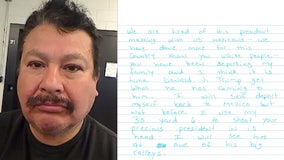 We are tired of this president
messing with us mexicans - we
have done more for this
country than you white people -
you have been deporting my
family and I think it is
time Donald J. Trump get
what he has coming to
him. I will self deport
myself back to Mexico but
not before I use my
30 yard 6 to shoot your
precious president in his
head - I will see him
at one of his big
ralleys.